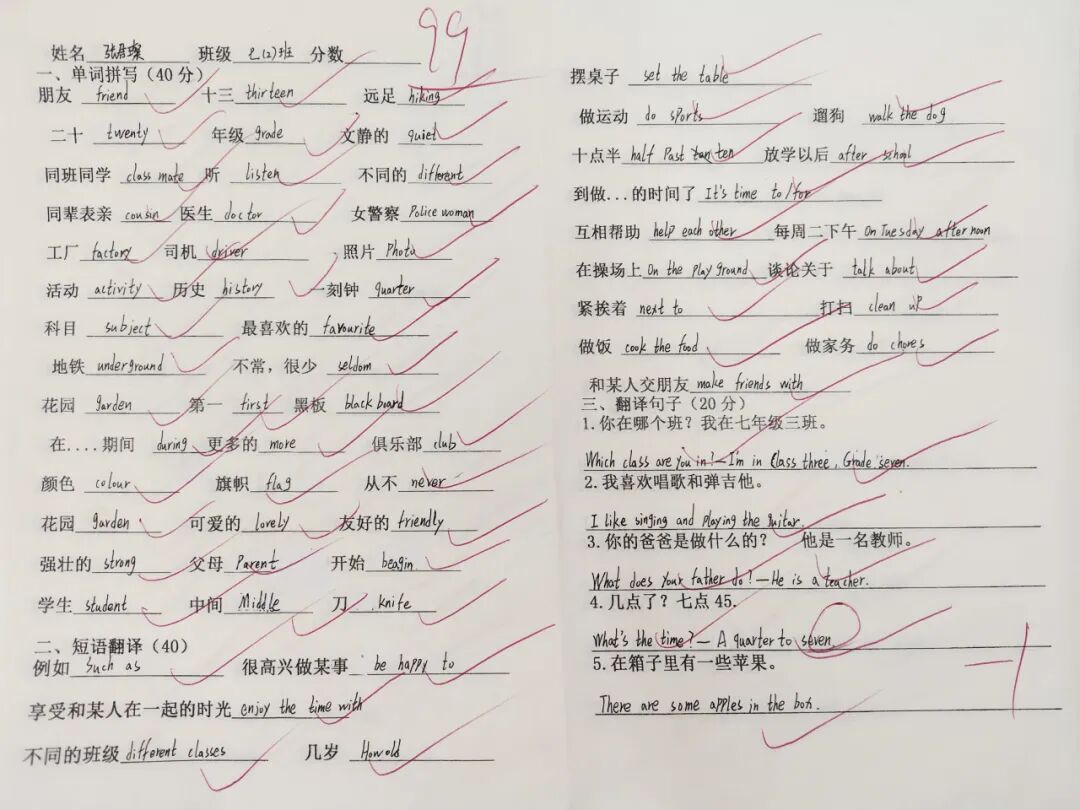 姓名 张君璨 班级 七(2)班 分数 99
一、单词拼写（40分）
朋友 friend 十三 thirteen 远足 hiking
二十 twenty 年级 grade 文静的 quiet
同班同学 class mate 听 listen 不同的 different
同辈表亲 cousin 医生 doctor 女警察 Police woman
工厂 factory 司机 driver ,照片 Photo
活动 activity 历史 history 一刻钟 quarter
科目 subject 最喜欢的 favourite
地铁 underground 不常，很少 seldom
花园 garden 第一 first 黑板 black board
在....期间 during 更多的 more 俱乐部 club
颜色 colour 旗帜 flag 从不 never
花园 garden 可爱的 lovely 友好的 friendly
强壮的 strong 父母 Parent 开始 beagin
学生 student 中间 Middle 刀 knife
二、短语翻译（40）
例如 Such as 很高兴做某事 be happy to
享受和某人在一起的时光 enjoy the time with
不同的班级 different classes 几岁 How old
摆桌子 set the table
做运动 do sports 遛狗 walk the dog
十点半 half Past ten 放学以后 after school
到做...的时间了 It's time to/for
互相帮助 help each other 每周二下午 On Tuesday afternoon
在操场上 On the play ground 谈论关于 talk about
紧挨着 next to 打扫 clean up
做饭 cook the food 做家务 do chores
和某人交朋友 make friends with
三、翻译句子（20分）
1.你在哪个班？我在七年级三班。
Which class are you in?—I'm in Class three, Grade seven.
2.我喜欢唱歌和弹吉他。
I like singing and playing the guitar.
3.你的爸爸是做什么的？ 他是一名教师。
What does your father do?—He is a teacher.
4.几点了？七点45.
What's the time?—A quarter to seven
-1
5.在箱子里有一些苹果。
There are some apples in the box.